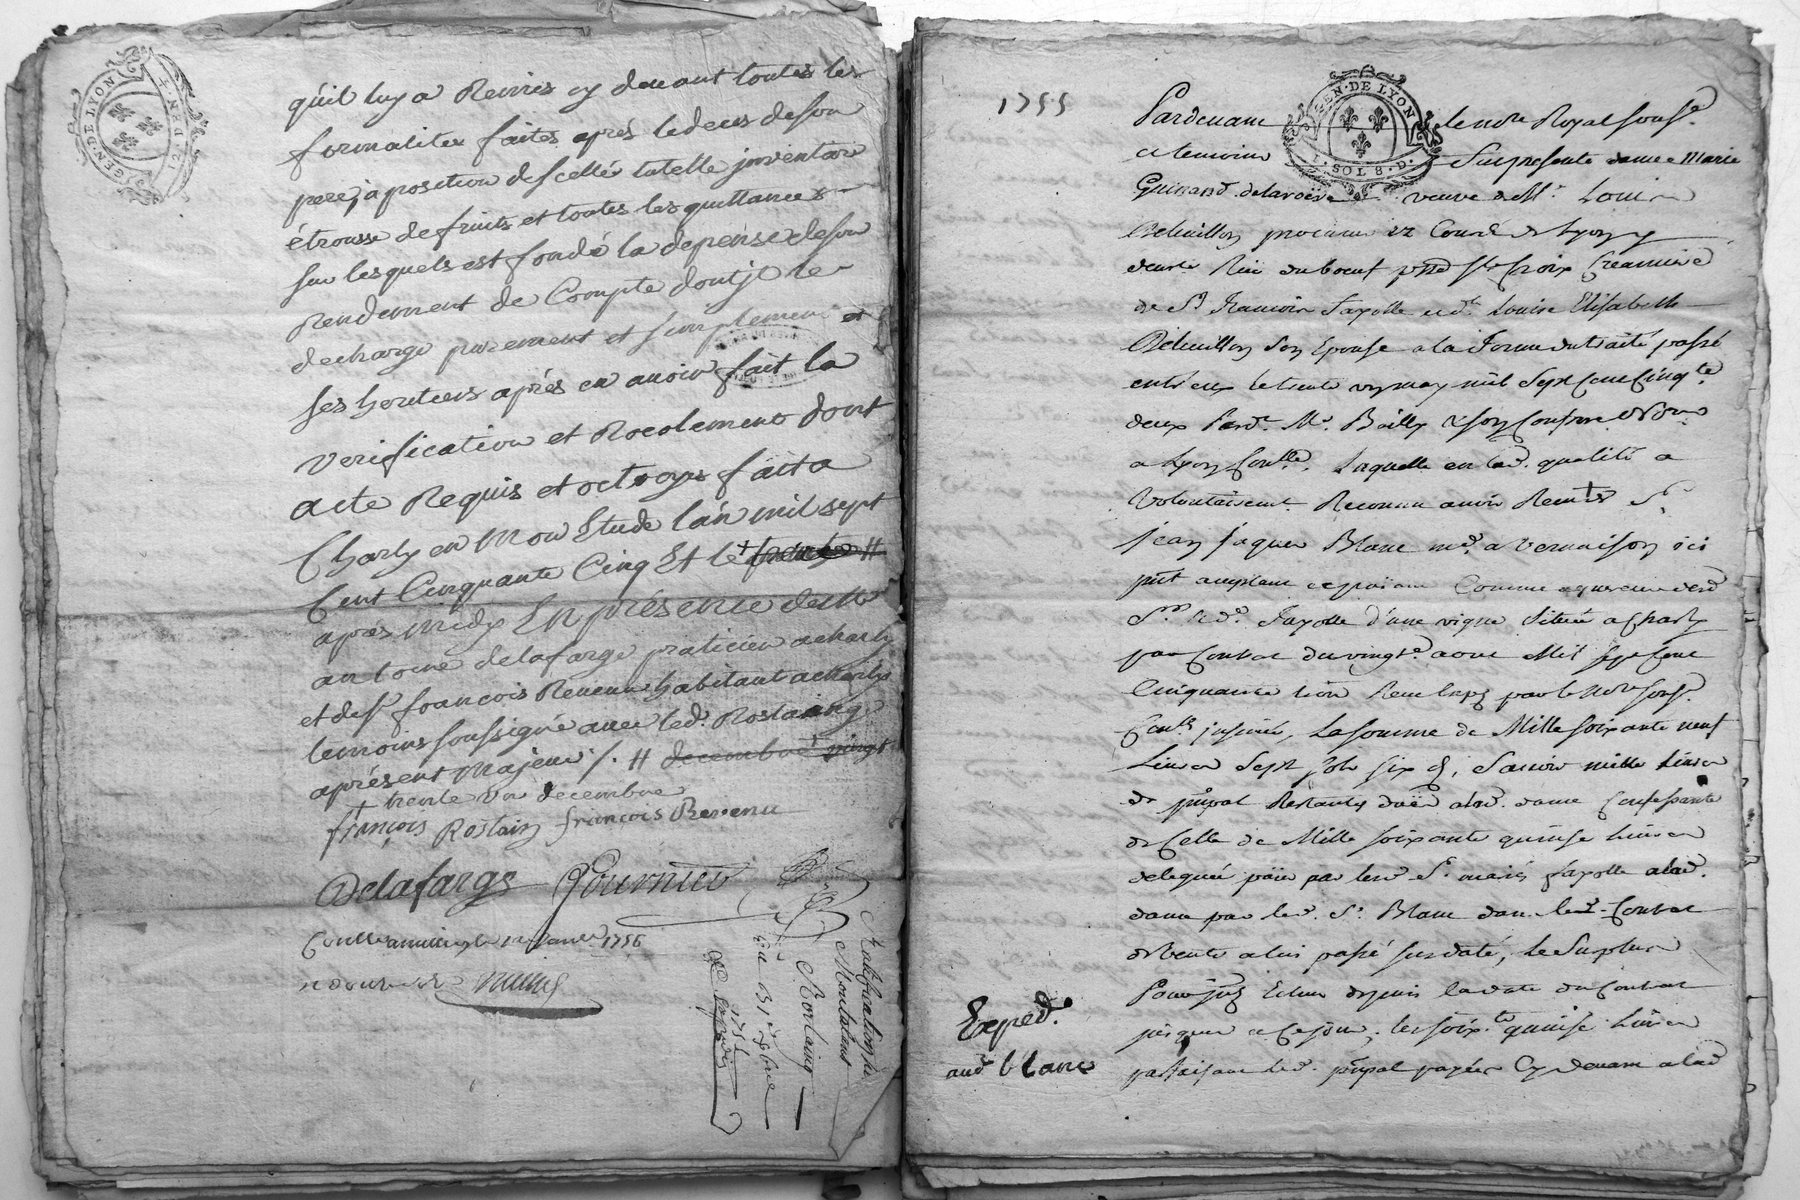 GEN. DE LYON
quil luy a Remis cy devant toutes les
formalitez faites après le deces de son
pere, aposition de scellé tutelle inventaire
étrousse de fruits et toutes les quittances
sur lesquels est fondé la depense de son
Rendement de Compte dont je le
decharge purement et simplement et
ses hoiriers après en avoir fait la
verification et Recolement dont
acte Requis et octroyé fait a
Charly en mon Etude lan mil sept
Cent Cinquante Cinq Et le
apres midy En présence de Me
antoine delafarge praticien a charly
et de sr françois Revenu habitant a charly
temoins soussigné avec led. Rostaing
aprésent majeur /. # decembre vingt
trente un decembre
françois Rostaing françois Revenu
Delafarge Fournier
Conllé a millery le janer 1756
Ratiffication de
Montaland
a Rostaing
du 31 xbre
1755
1755
GEN. DE LYON
1. SOL 8. D.
Pardevant le notre Royal souse.
et temoins fut presente dame Marie
Guinand delaroëre veuve de Mr. Louis
procureur ez Cours de Lyon y
demte Rüe du boeuf psse ste Croix Creanciere
de Sr francois fayolle et de. Louise Elisabeth
son Epouse a la forme du traité passé
entr'eux le trente un may mil sept cent Cinqte
deux Pardt. Me. Bailly & son Confrere Nores
a Lyon Conllé. Laquelle en lad. qualité a
Volontairemt Reconnu avoir Receu de Sr.
jean jaques Blanc md. a Vernaison ici
pnt acceptant et paiant Comme aquereur desd
Sr. & de. fayolle d'une vigne située a Charly
par Contrat du vingt aout Mil sept Cent
Cinquante Receu par le Nore souse.
Conllé insinué, La somme de Mille soixante neuf
Livres sept sols six d, savoir mille Livres
de pnpal Restantes düës a lad. dame Confessante
de Celle de Mille soixante quinse Livres
deleguée païer par lesd Sr. mariés fayolle a lad.
dame par led. Sr. Blanc dans led. Contrat
de vente a lui passé susdaté, le surplus
pour jnt Echus depuis la date du Contrat
jusques a ce jour, les soixte quinse Livres
parfaisant led. pnpal payées Cy devant a lad
Exped.
aud blanc